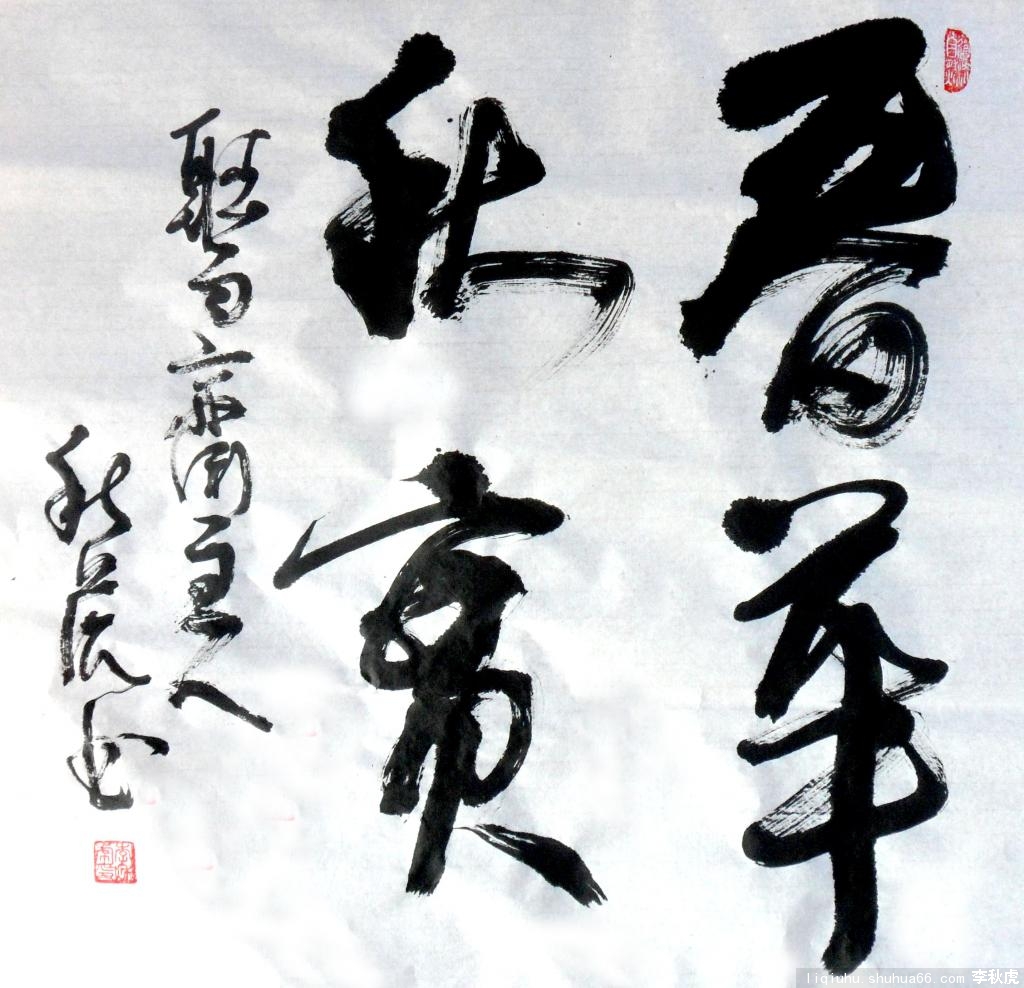 春華
秋實
聚百齋主人
秋虎书
liqiuhu.shuhua66.com 李秋虎